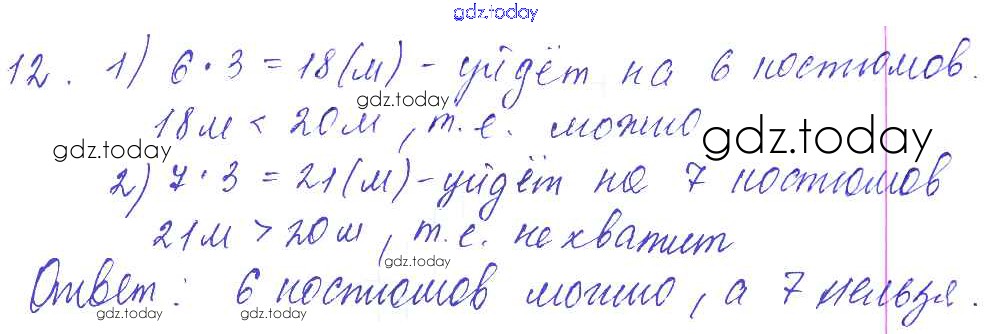 gdz.today
12. 1) 6·3=18(м)-уйдёт на 6 костюмов.
gdz.today
18м < 20м, т.е. можно
gdz.today
gdz.today
2) 7·3=21(м)-уйдёт на 7 костюмов
21м > 20м, т.е. не хватит
gdz.today
Ответ: 6 костюмов можно, а 7 нельзя.
gdz.today